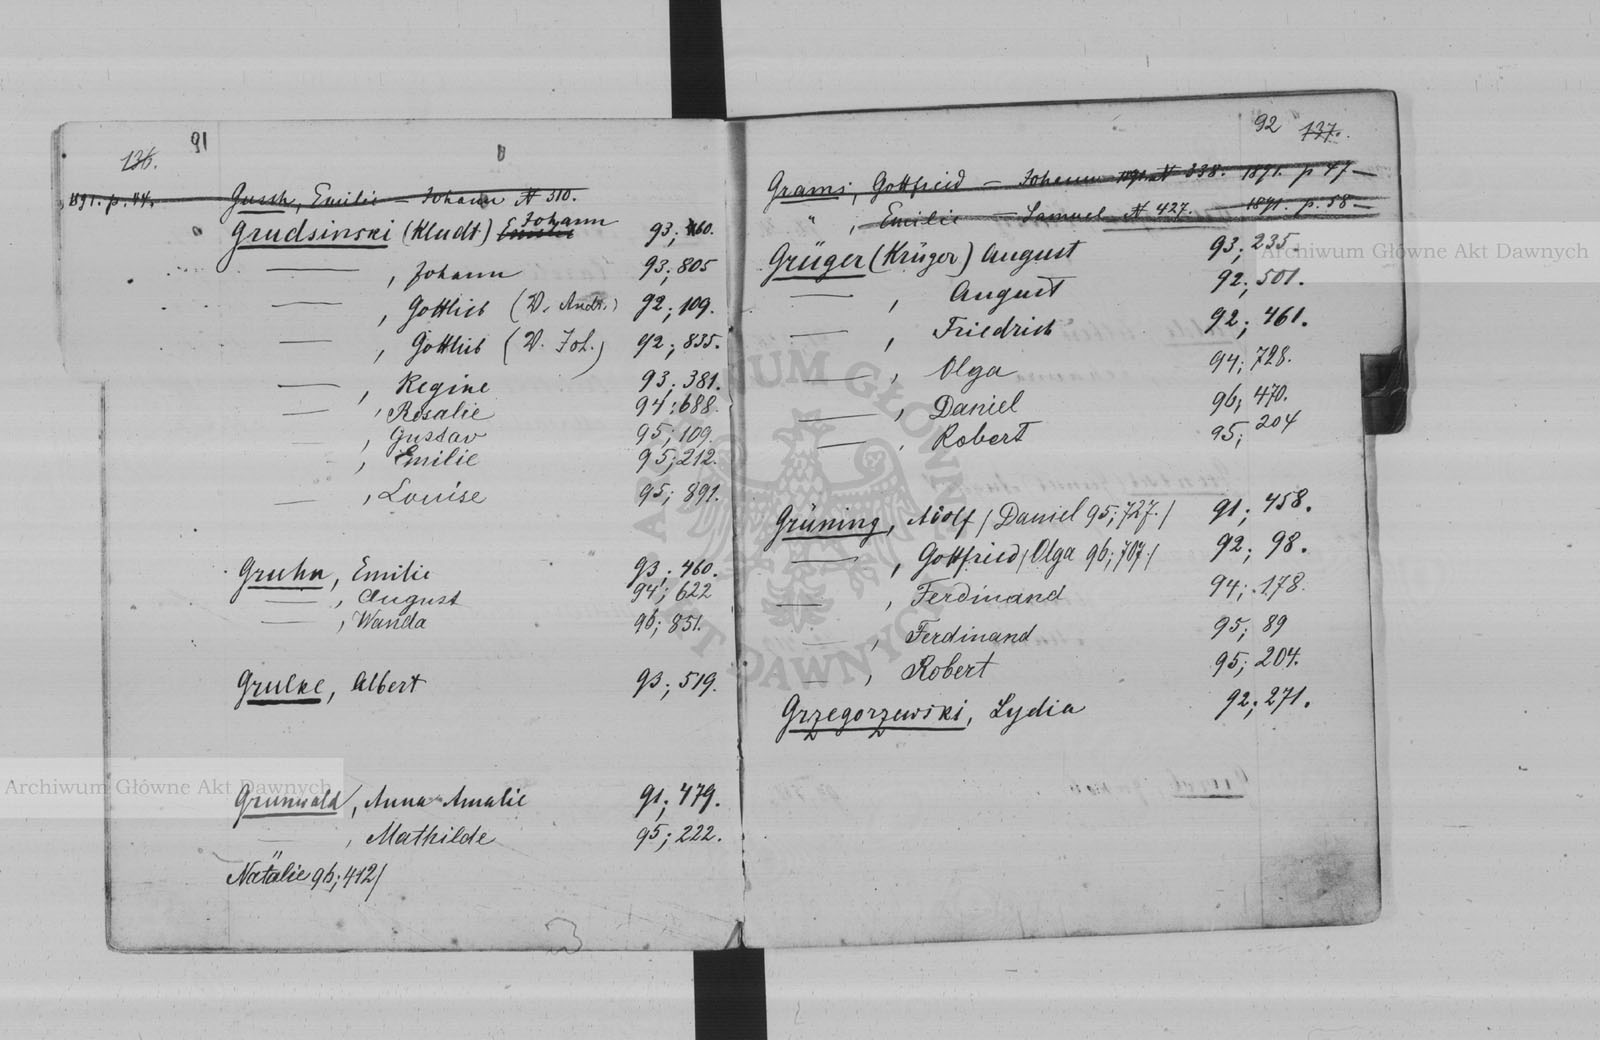 136.
91
1891. p. 44.
Gusch, Emilie — Johann N 310.
Grudsinski (Kludt) Emilie Johann 93; 460.
—, Johann 93; 805
—, Gottlieb (V. Andr.) 92; 109.
—, Gottlieb (V. Joh.) 92; 835.
—, Regine 93; 381.
—, Rosalie 94; 688.
, Gustav 95; 109
, Emilie 95; 212.
—, Louise 95; 891.
Gruhn, Emilie 93; 460.
—, August 94; 622
—, Wanda 96; 851.
Grulke, Albert 93; 519.
Grunwald, Anna Amalie 91; 479.
—, Mathilde 95; 222.
" Natalie 96; 412/
92
137.
Grams, Gottfried — Johann N 338. 1891. p 47 —
", Emilie — Samuel N 427. 1891. p. 58 —
Grüger (Krüger) August 93; 235.
—, August 92; 501.
—, Friedrich 92; 461.
—, Olga 94; 728.
—, Daniel 96; 470.
—, Robert 95; 204
Grüning, Adolf / Daniel 95; 727. / 91; 458.
—, Gottfried / Olga 96; 707. / 92; 98.
—, Ferdinand 94; 178.
—, Ferdinand 95; 89
—, Robert 95; 204.
Grzegorzewski, Lydia 92; 271.
Archiwum Główne Akt Dawnych
Archiwum Główne Akt Dawnych
Archiwum Główne Akt Dawnych
Archiwum Główne Akt Dawnych
ARCHIWUM GŁÓWNE AKT DAWNYCH